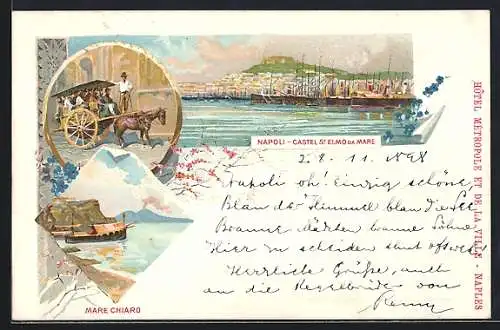 NAPOLI - CASTEL St ELMO DA MARE
2.8.11.1898
Napoli oh! Einzig schöne,
Blau der Himmel blau die See
Braune Mädchen braune Söhne
Hier zu scheiden
Herzliche Grüße, auch
an die Kegelbrüder von
MARE CHIARO
HÔTEL MÉTROPOLE ET DE LA VILLE - NAPLES